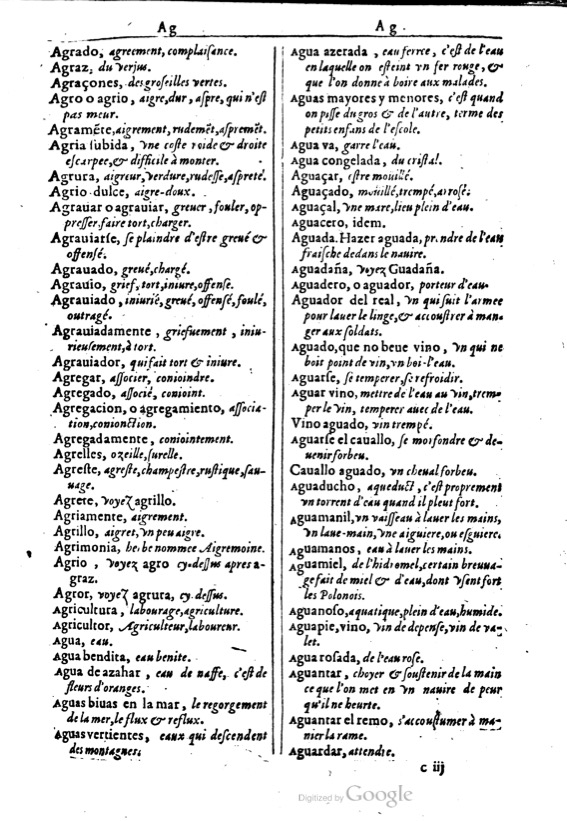 Ag
Agrado, agreement, complaiſance.
Agraz, du verjus.
Agraçones, des groſeilles vertes.
Agro o agrio, aigre, dur, aſpre, qui n'eſt
pas meur.
Agramẽte, aigrement, rudemẽt, aſpremẽt.
Agria ſubida, vne coſte roide & droite
eſcarpee, & difficile à monter.
Agrura, aigreur, verdure, rudeſſe, aſpreté.
Agrio dulce, aigre-doux.
Agrauiar o agrauiar, greuer, fouler, op-
preſſer, faire tort, charger.
Agrauiarſe, ſe plaindre d'eſtre greué &
offenſé.
Agrauado, greué, chargé.
Agrauio, grief, tort, iniure, offenſe.
Agrauiado, iniurié, greué, offenſé, foulé,
outragé.
Agrauiadamente, griefuement, iniu-
rieuſement, à tort.
Agrauiador, qui fait tort & iniure.
Agregar, aſſocier, conioindre.
Agregado, aſſocié, conioint.
Agregacion, o agregamiento, aſſocia-
tion, conionction.
Agregadamente, coniointement.
Agrelles, ozeille, ſurelle.
Agreſte, agreſte, champeſtre, ruſtique, ſau-
uage.
Agrete, voyez agrillo.
Agriamente, aigrement.
Agrillo, aigret, vn peu aigre.
Agrimonia, herbe nommee Aigremoine.
Agrio, voyez agro cy-deſſus apres a-
graz.
Agror, voyez agrura, cy-deſſus.
Agricultura, labourage, agriculture.
Agricultor, Agriculteur, laboureur.
Agua, eau.
Agua bendita, eau benite.
Agua de azahar, eau de naffe, c'eſt de
fleurs d'oranges.
Aguas biuas en la mar, le regorgement
de la mer, le flux & reflux.
Aguas vertientes, eaux qui deſcendent
des montagnes.
Ag
Agua azerada, eau ferree, c'eſt de l'eau
en laquelle on eſteint vn fer rouge, &
que l'on donne à boire aux malades.
Aguas mayores y menores, c'eſt quand
on piſſe du gros & de l'autre, terme des
petits enfans de l'eſcole.
Agua va, garre l'eau.
Agua congelada, du criſtal.
Aguaçar, eſtre mouillé.
Aguaçado, mouillé, trempé, arroſé.
Aguaçal, vne mare, lieu plein d'eau.
Aguacero, idem.
Aguada. Hazer aguada, prendre de l'eau
fraiſche dedans le nauire.
Aguadaña, voyez Guadaña.
Aguadero, o aguador, porteur d'eau.
Aguador del real, vn qui ſuit l'armee
pour lauer le linge, & accouſtrer à man-
ger aux ſoldats.
Aguado, que no beue vino, vn qui ne
boit point de vin, vn boi-l'eau.
Aguarſe, ſe temperer, ſe refroidir.
Aguar vino, mettre de l'eau au vin, trem-
per le vin, temperer auec de l'eau.
Vino aguado, vin trempé.
Aguarſe el cauallo, ſe morfondre & de-
uenir forbeu.
Cauallo aguado, vn cheual forbeu.
Aguaducho, aqueduct, c'eſt proprement
vn torrent d'eau quand il pleut fort.
Aguamanil, vn vaiſſeau à lauer les mains,
vn laue-main, vne aiguiere, ou eſguiere.
Aguamanos, eau à lauer les mains.
Aguamiel, de l'hidromel, certain breuua-
ge fait de miel & d'eau, dont vſent fort
les Polonois.
Aguanoſo, aquatique, plein d'eau, humide.
Aguapie, vino, vin de depenſe, vin de va-
let.
Agua roſada, de l'eau roſe.
Aguantar, choyer & ſouſtenir de la main
ce que l'on met en vn nauire de peur
qu'il ne heurte.
Aguantar el remo, s'accouſtumer à ma-
nier la rame.
Aguardar, attendre.
c iij
Digitized by Google